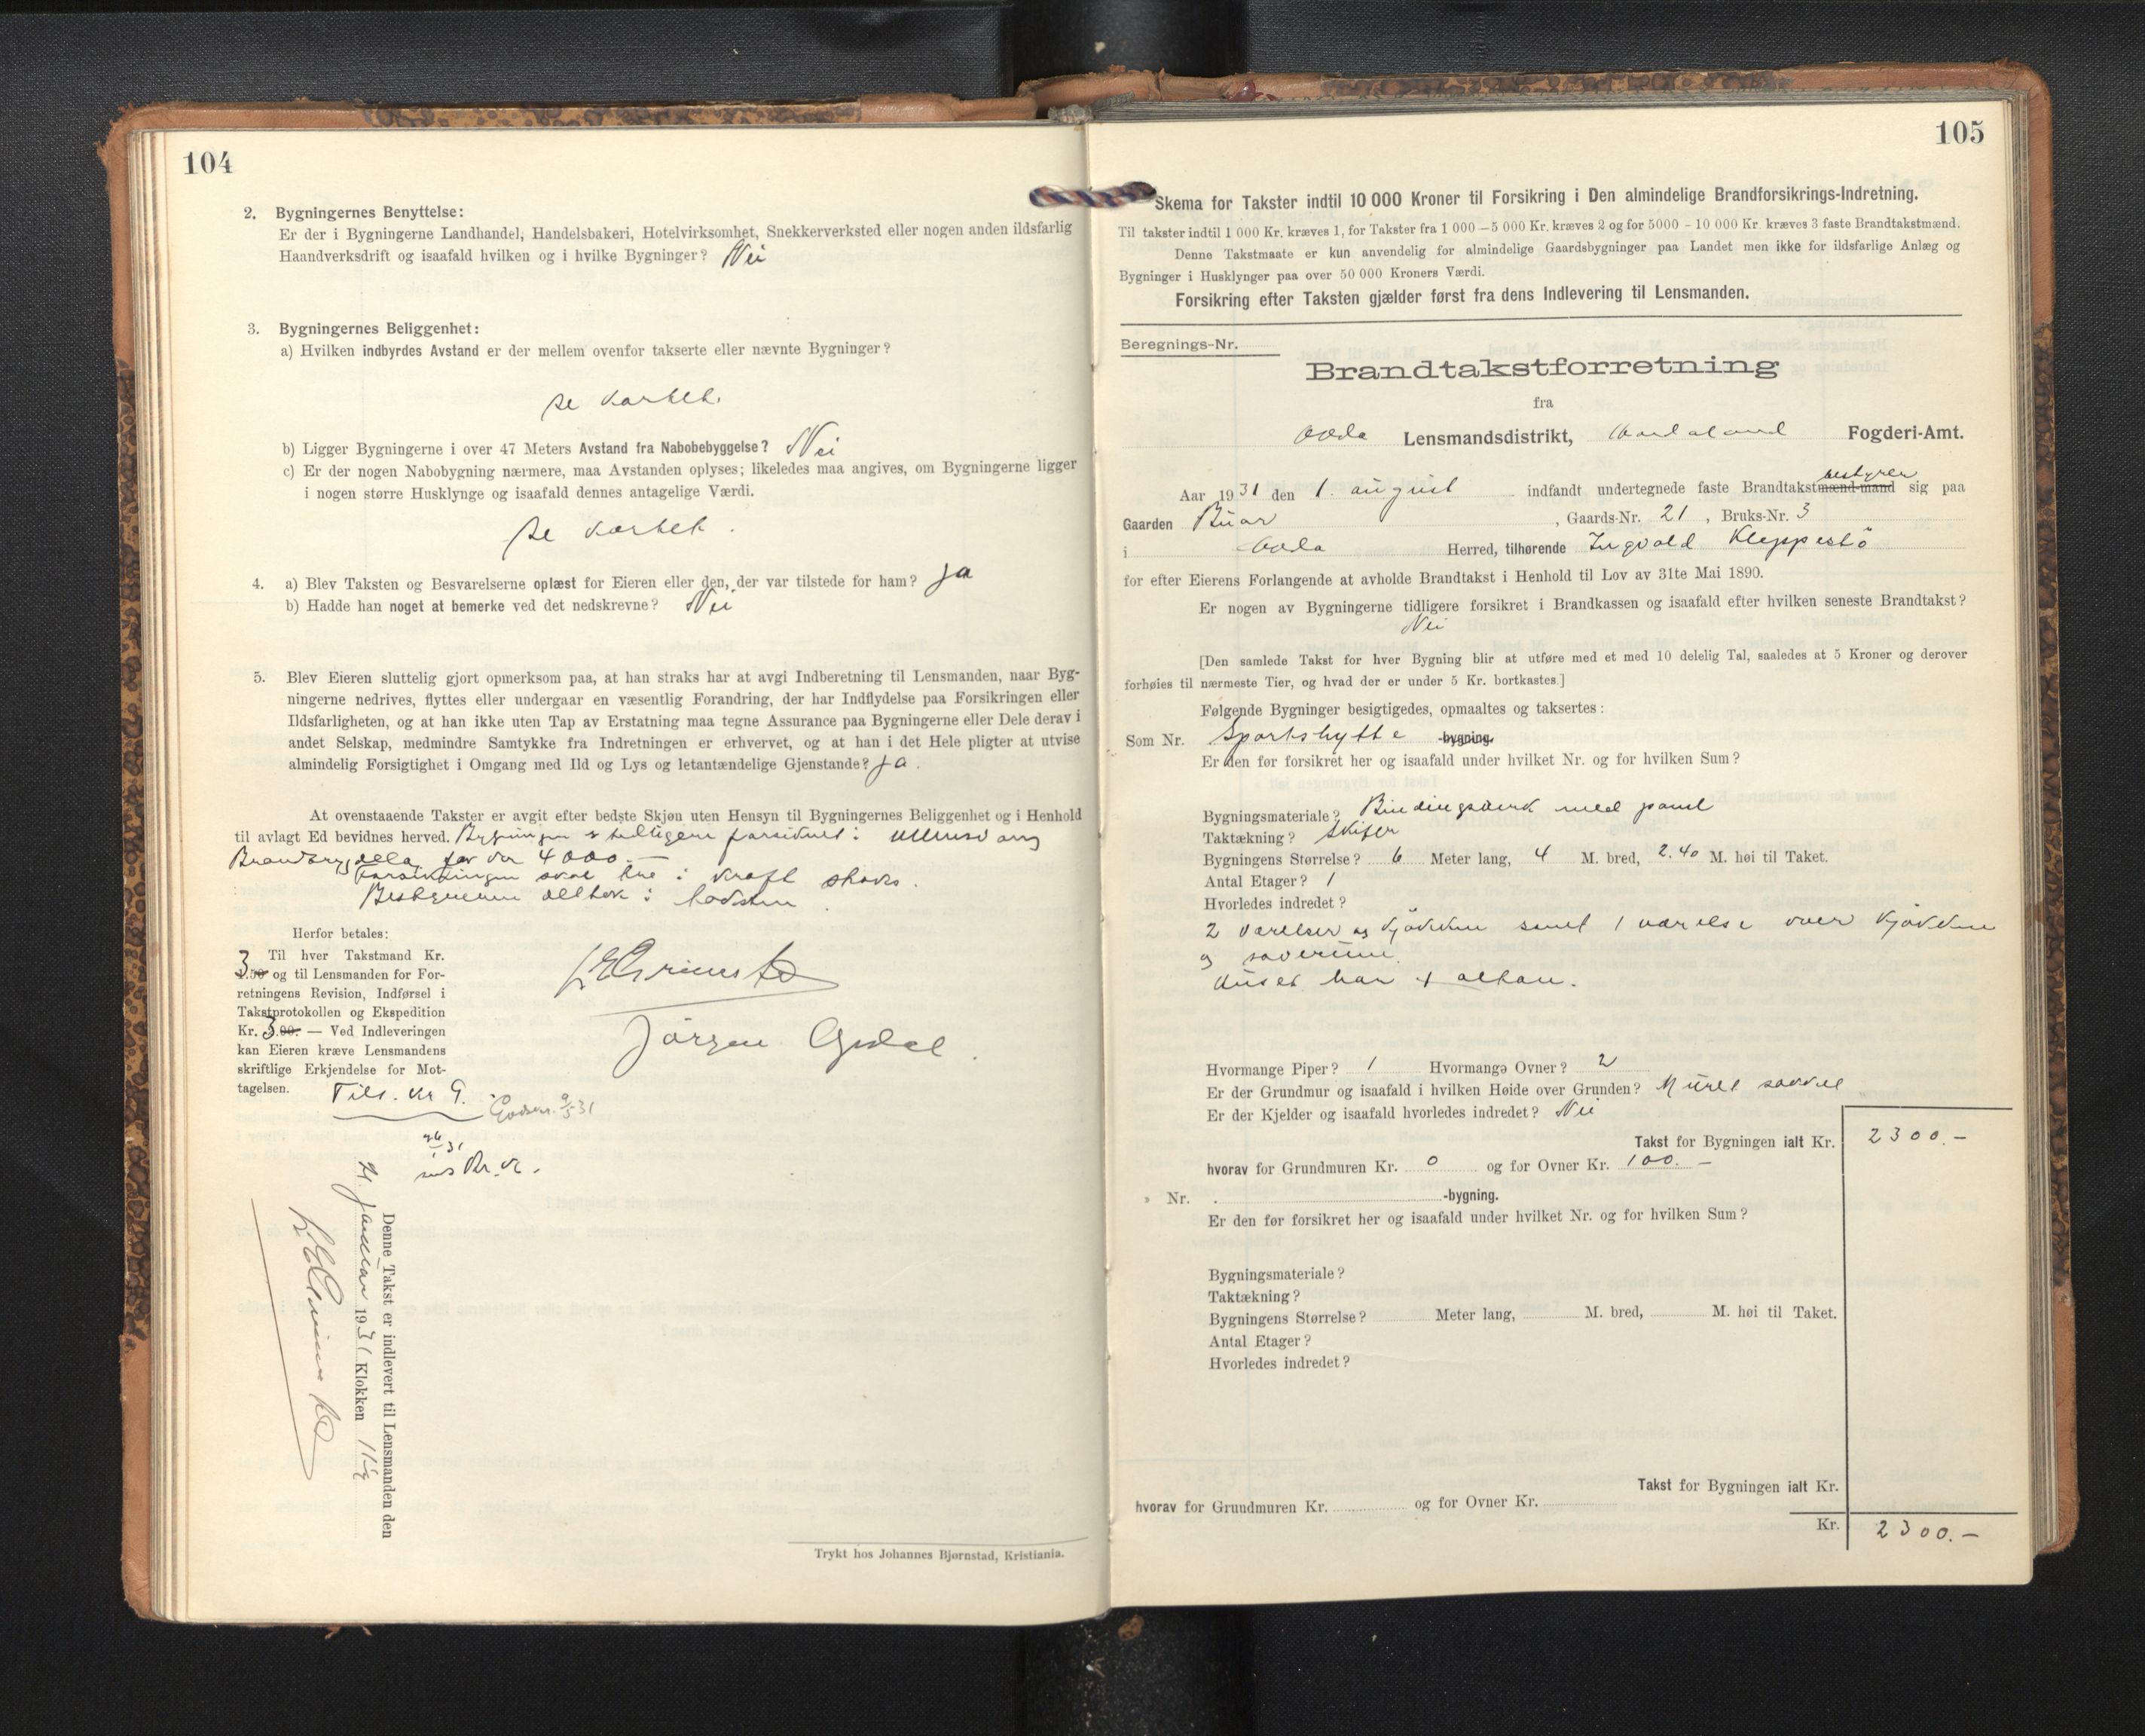 104
2. Bygningernes Benyttelse:
Er der i Bygningerne Landhandel, Handelsbakeri, Hotelvirksomhet, Snekkerverksted eller nogen anden ildsfarlig
Haandverksdrift og isaafald hvilken og i hvilke Bygninger? Nei
3. Bygningernes Beliggenhet:
a) Hvilken indbyrdes Avstand er der mellem ovenfor takserte eller nævnte Bygninger?
se kartet.
b) Ligger Bygningerne i over 47 Meters Avstand fra Nabobebyggelse? Nei
c) Er der nogen Nabobygning nærmere, maa Avstanden oplyses; likeledes maa angives, om Bygningerne ligger
i nogen større Husklynge og isaafald dennes antagelige Værdi.
se kartet.
4. a) Blev Taksten og Besvarelserne oplæst for Eieren eller den, der var tilstede for ham? ja
b) Hadde han noget at bemerke ved det nedskrevne? Nei
5. Blev Eieren sluttelig gjort opmerksom paa, at han straks har at avgi Indberetning til Lensmanden, naar Byg-
ningerne nedrives, flyttes eller undergaar en væsentlig Forandring, der har Indflydelse paa Forsikringen eller
Ildsfarligheten, og at han ikke uten Tap av Erstatning maa tegne Assurance paa Bygningerne eller Dele derav i
andet Selskap, medmindre Samtykke fra Indretningen er erhvervet, og at han i det Hele pligter at utvise
almindelig Forsigtighet i Omgang med Ild og Lys og letantændelige Gjenstande? ja.
At ovenstaaende Takster er avgit efter bedste Skjøn uten Hensyn til Bygningernes Beliggenhet og i Henhold
til avlagt Ed bevidnes herved. Bygningen
for kr 4000.-
forsikringen skal tre i kraft straks.
Herfor betales:
Til hver Takstmand Kr.
3 og til Lensmanden for For-
retningens Revision, Indførsel i
Takstprotokollen og Ekspedition
Kr. 3.00. — Ved Indleveringen
kan Eieren kræve Lensmandens
skriftlige Erkjendelse for Mot-
tagelsen. Tils. kr 9.
Jørgen
Denne Takst er indlevert til Lensmanden den
21. januar 1931 Klokken 11
Trykt hos Johannes Bjørnstad, Kristiania.
105
Skema for Takster indtil 10 000 Kroner til Forsikring i Den almindelige Brandforsikrings-Indretning.
Til takster indtil 1 000 Kr. kræves 1, for Takster fra 1 000—5 000 Kr. kræves 2 og for 5000 - 10 000 Kr. kræves 3 faste Brandtakstmænd.
Denne Takstmaate er kun anvendelig for almindelige Gaardsbygninger paa Landet men ikke for ildsfarlige Anlæg og
Bygninger i Husklynger paa over 50 000 Kroners Værdi.
Forsikring efter Taksten gjælder først fra dens Indlevering til Lensmanden.
Beregnings-Nr.
Brandtakstforretning
fra
Odda Lensmandsdistrikt, Hordaland Fogderi-Amt.
Aar 1931 den 1. august indfandt undertegnede faste Brandtakstmænd-mand bestyrer sig paa
Gaarden Buar, Gaards-Nr. 21, Bruks-Nr. 3
i Odda Herred, tilhørende Ingvald Kleppestö
for efter Eierens Forlangende at avholde Brandtakst i Henhold til Lov av 31te Mai 1890.
Er nogen av Bygningerne tidligere forsikret i Brandkassen og isaafald efter hvilken seneste Brandtakst?
Nei
[Den samlede Takst for hver Bygning blir at utføre med et med 10 delelig Tal, saaledes at 5 Kroner og derover
forhøies til nærmeste Tier, og hvad der er under 5 Kr. bortkastes.]
Følgende Bygninger besigtigedes, opmaaltes og taksertes:
Som Nr. Sportshytte -bygning.
Er den før forsikret her og isaafald under hvilket Nr. og for hvilken Sum?
Bygningsmateriale? Bindingsverk med panel
Taktækning? Skifer
Bygningens Størrelse? 6 Meter lang, 4 M. bred, 2.40 M. høi til Taket.
Antal Etager? 1
Hvorledes indredet?
2 værelser og kjøkken samt 1 værelse over kjøkken
og soverum.
Huset har 1 altan.
Hvormange Piper? 1 Hvormange Ovner? 2
Er der Grundmur og isaafald i hvilken Høide over Grunden? Muret
Er der Kjelder og isaafald hvorledes indredet? Nei
Takst for Bygningen ialt Kr. 2300.-
hvorav for Grundmuren Kr. 0 og for Ovner Kr. 100.-
» Nr. -bygning.
Er den før forsikret her og isaafald under hvilket Nr. og for hvilken Sum?
Bygningsmateriale?
Taktækning?
Bygningens Størrelse? Meter lang, M. bred, M. høi til Taket.
Antal Etager?
Hvorledes indredet?
Takst for Bygningen ialt Kr.
hvorav for Grundmuren Kr. og for Ovner Kr.
Kr. 2300.-